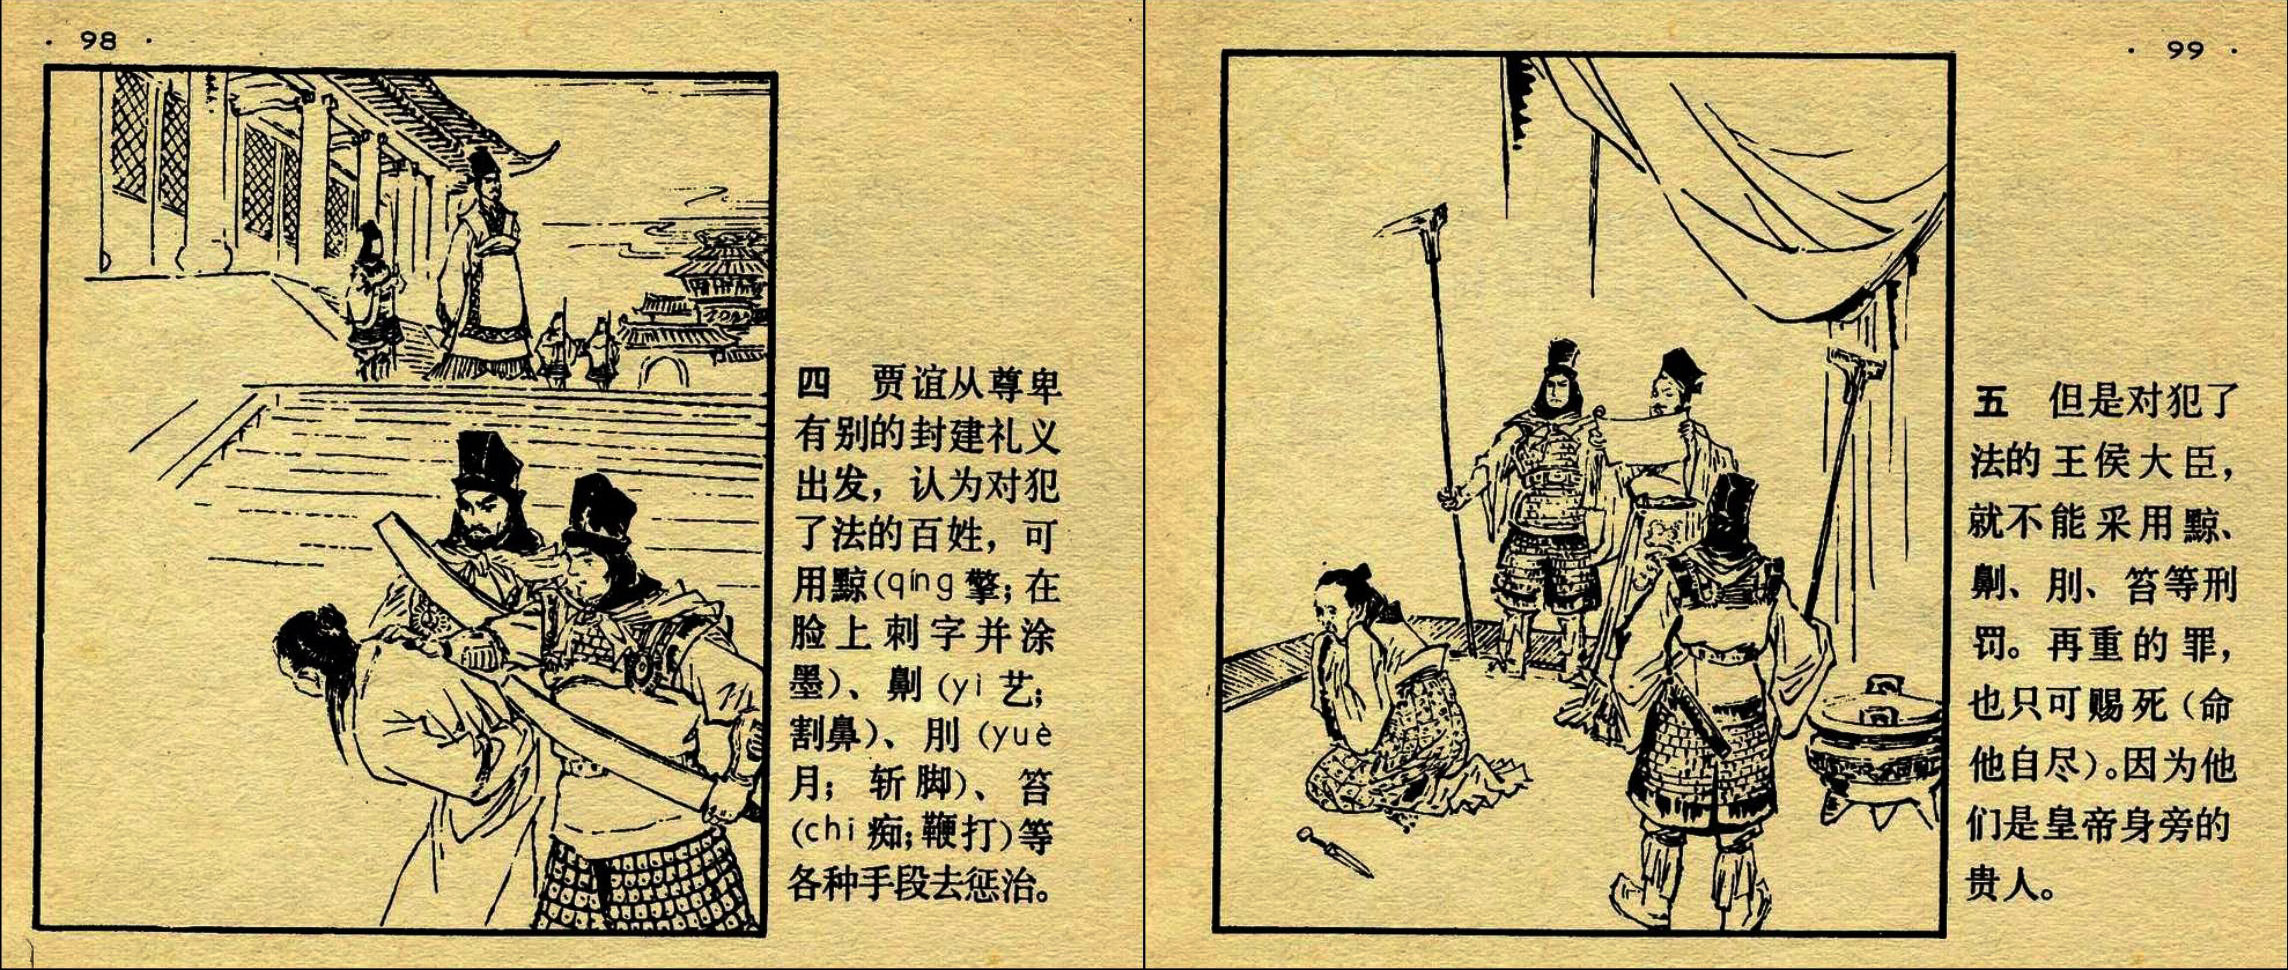 · 98 ·
四 贾谊从尊卑
有别的封建礼义
出发，认为对犯
了法的百姓，可
用黥(qíng 擎；在
脸上刺字并涂
墨)、劓 (yì 艺；
割鼻)、刖 (yuè
月； 斩脚)、笞
(chi 痴；鞭打)等
各种手段去惩治。
· 99 ·
五 但是对犯了
法的王侯大臣，
就不能采用黥、
劓、刖、笞等刑
罚。再重的罪，
也只可赐死(命
他自尽)。因为他
们是皇帝身旁的
贵人。